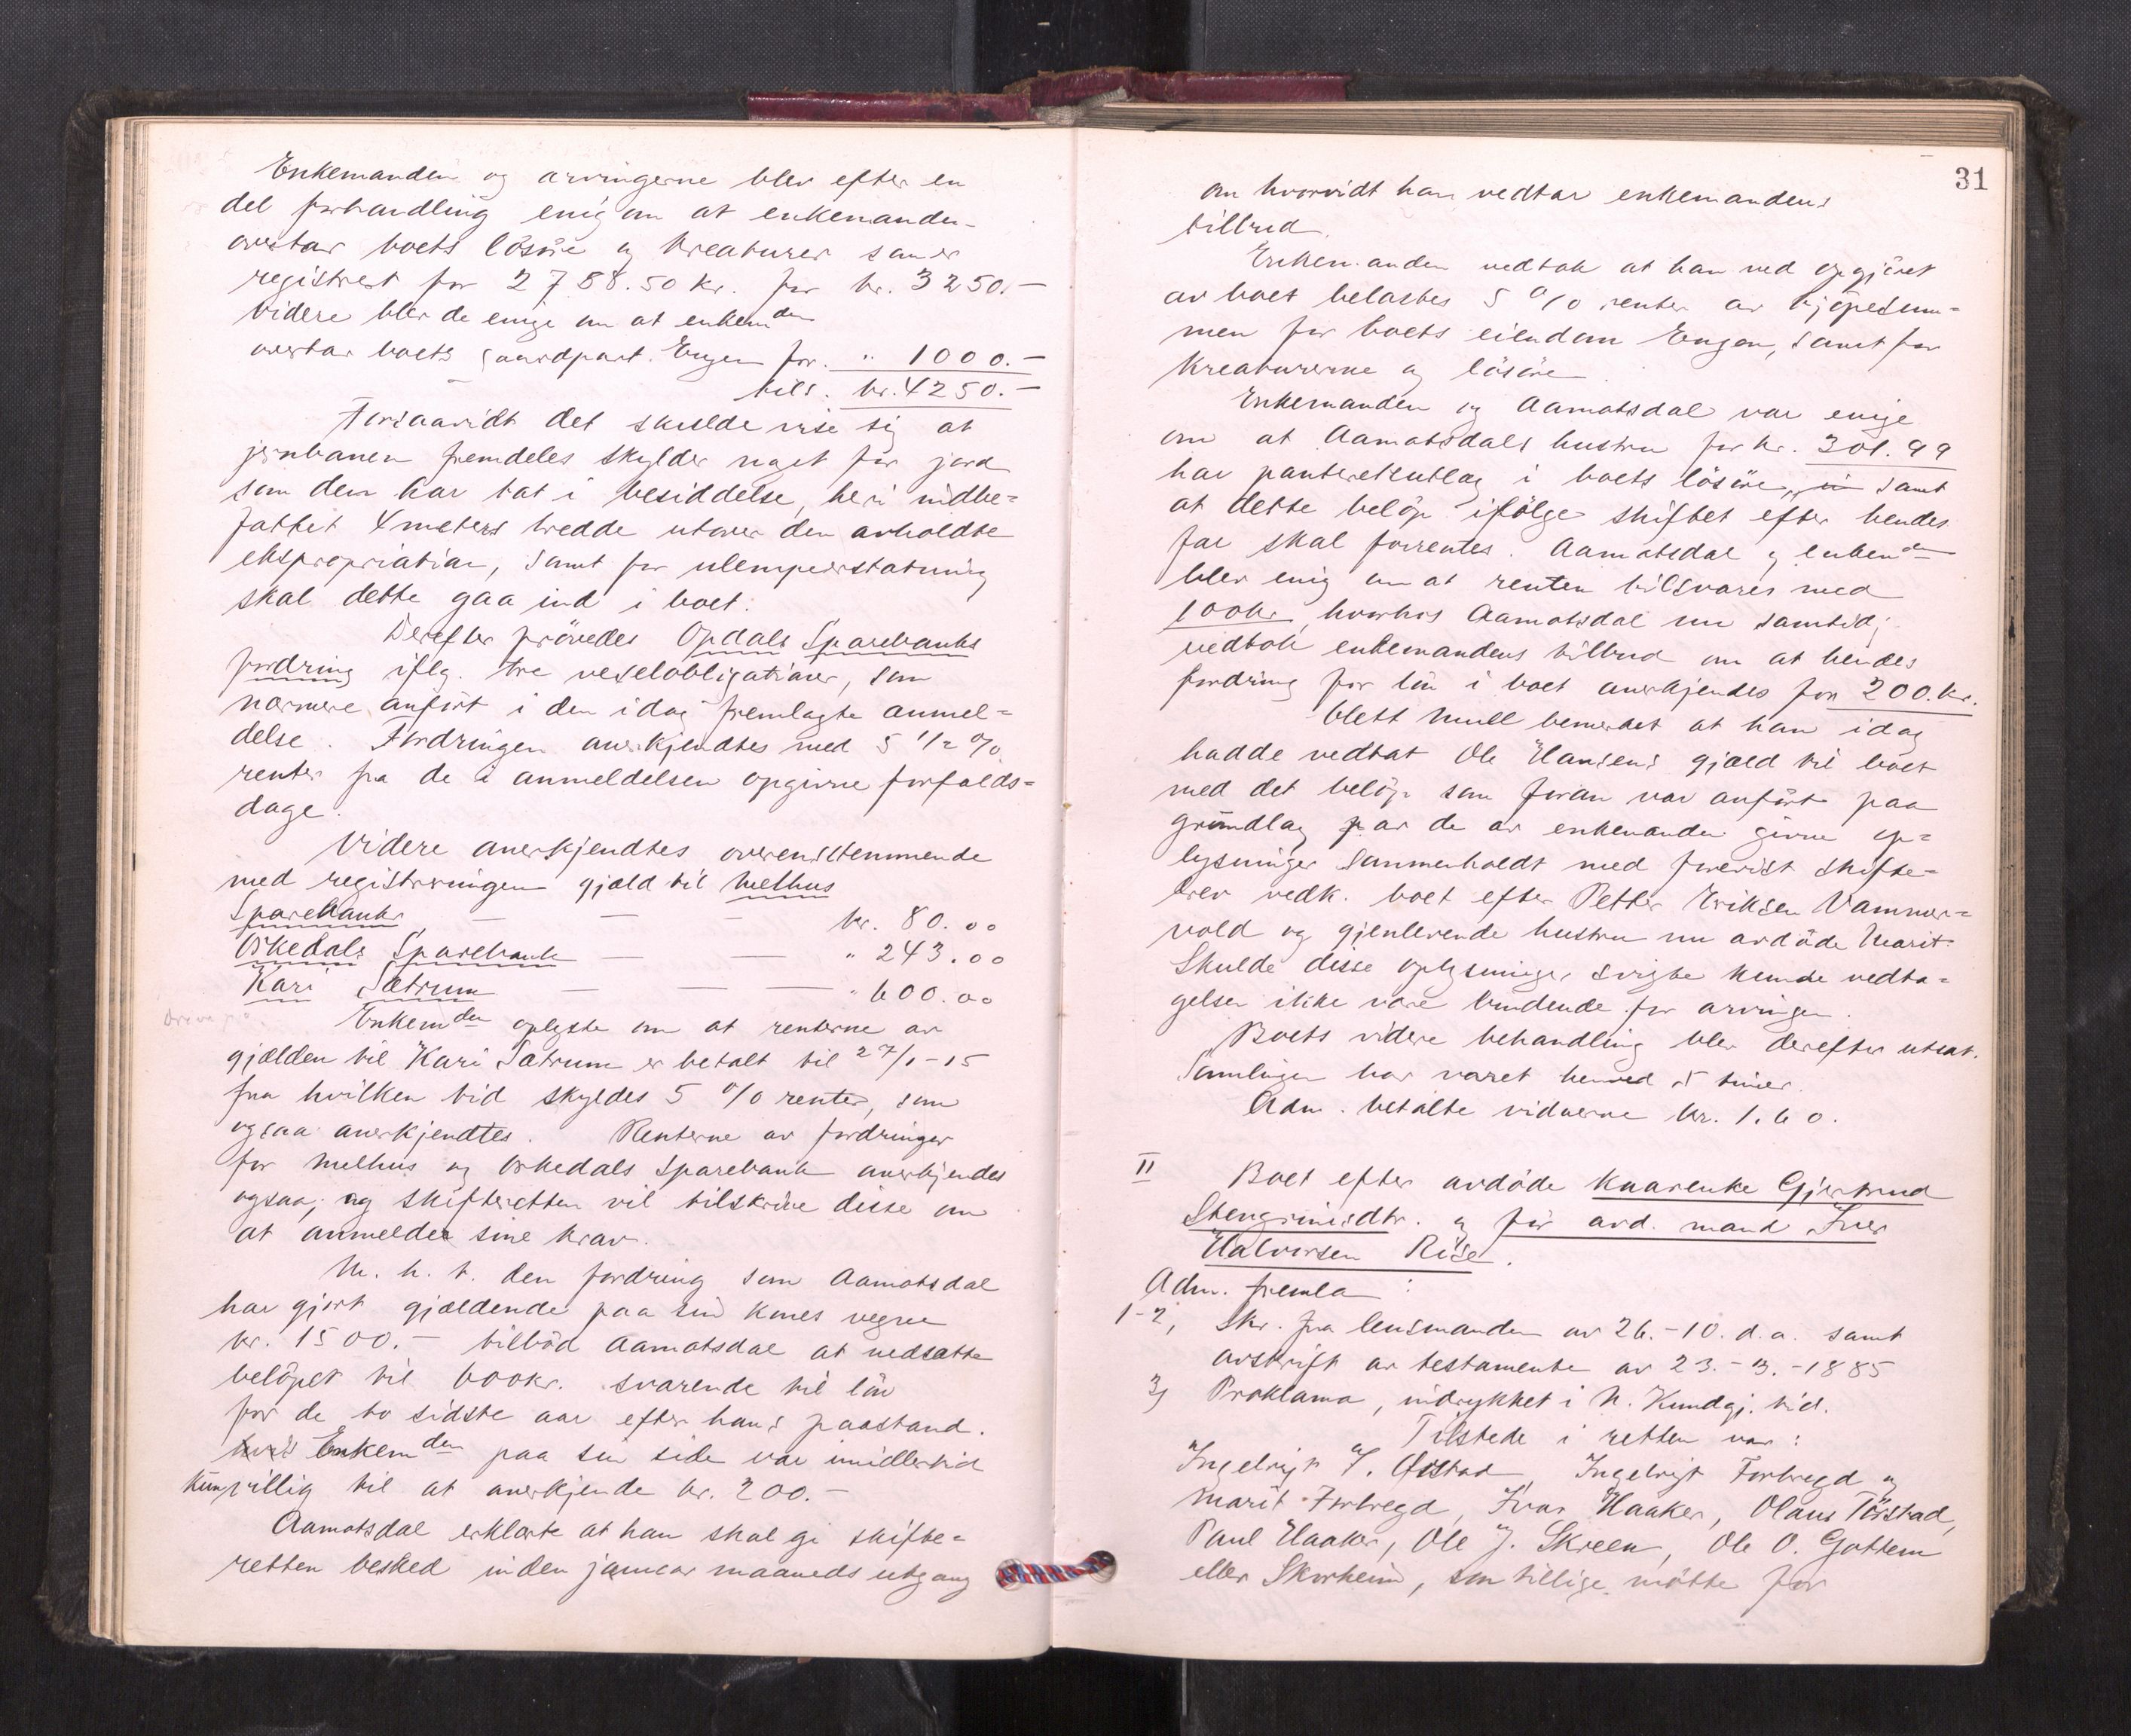 Enkemanden og arvingerne blev efter en
del forhandling enig om at enkemanden
overtar boets lösöre og kreaturer som er
registrert for 2788.50 kr. for kr. 3250.-
videre blev de enige om at enkemden
overtar boets jordpart. Engen for. " 1000.-
tils. kr. 4250.-
Forsaavidt det skulde vise sig at
jernbanen fremdeles skylder noget for jord
som den har tat i besiddelse, heri indbe=
fattet 4 meters bredde utover den avholdte
ekspropriation, samt for ulempeerstatning
skal dette gaa ind i boet.
Derefter prövedes Opdals Sparebanks
fordring iflg. tre vexelobligationer, som
nærmere anfört i den idag fremlagte anmel=
delse. Fordringen anerkjendtes med 5 1/2 %
renter fra de i anmeldelsen opgivne forfalds=
dage.
Videre anerkjendtes overensstemmende
med registreringen gjæld til Melhus
Sparebank — — — kr. 80.00
Orkedals Sparebank — — " 243.00
Kari Sætrum — — — " 600.00
Enkemden oplyste om at renterne av
gjælden til Kari Sætrum er betalt til 27/1-15
fra hvilken tid skyldes 5 % renter, som
ogsaa anerkjendtes. Renterne av fordringer
for Melhus og Orkedals Sparebank anerkjendes
ogsaa; og skifteretten vil tilskrive disse om
at anmelde sine krav.
M. h. t. den fordring som Aamotsdal
har gjort gjældende paa sin kones vegne
kr. 1500.- tilböd Aamotsdal at nedsætte
belöpet til 600 kr. svarende til lön
for de to sidste aar efter hans paastand.
Enkemden paa sin side var imidlertid
kun villig til at anerkjende kr. 200.-
Aamotsdal erklærte at han skal gi skifte=
retten besked inden januar maaneds utgang
31
om hvorvidt han vedtar enkemandens
tilbud.
Enkemanden vedtok at han ved opgjöret
av boet belastes 5 % renter av kjöpesum=
men for boets eiendom Engen, samt for
kreaturerne og lösöre.
Enkemanden og Aamotsdal var enige
om at Aamotsdals hustru for kr. 301.99
har panteretsutlæg i boets lösöre, samt
at dette belöp ifölge skiftet efter hendes
far skal forrentes. Aamotsdal og enkemden
blev enig om at renten tilsvares med
100 kr, hvorhos Aamotsdal nu samtidig
vedtok enkemandens tilbud om at hendes
fordring for lön i boet anerkjendes for 200. kr.
Klett Mull bemerket at han idag
hadde vedtat Ole Hansens gjæld til boet
med det belöp som foran var anfört paa
grundlag av de av enkemanden givne op=
lysninger sammenholdt med forevist skifte=
brev vedk. boet efter Petter Eriksen Vammer=
vold og gjenlevende hustru nu avdöde Marit.
Skulde disse oplysninger svigte kunde vedta=
gelsen ikke være bindende for arvingen.
Boets videre behandling blev derefter utsat.
Samlingen har varet henved 5 timer.
Adm. betalte vidnerne kr. 1.60.
II Boet efter avdöde Kaarenke Gjertrud
Stengrimsdtr. og för avd. mand Iver
Halvorsen Rise.
Adm. fremla:
1-2, Skr. fra lensmanden av 26.-10. d.a. samt
avskrift av testamente av 23.-3.-1885
3, Proklama, indrykket i N. Kundgj. tid.
Tilstede i retten var:
Ingebrigt J. Aastad, Ingebrigt Forbregd og
Marit Forbregd, Ivar Haaker, Olaus Törstad,
Paul Haaker, Ole J. Skreen, Ole O. Gottem
eller Skorheim, som tillige mötte for